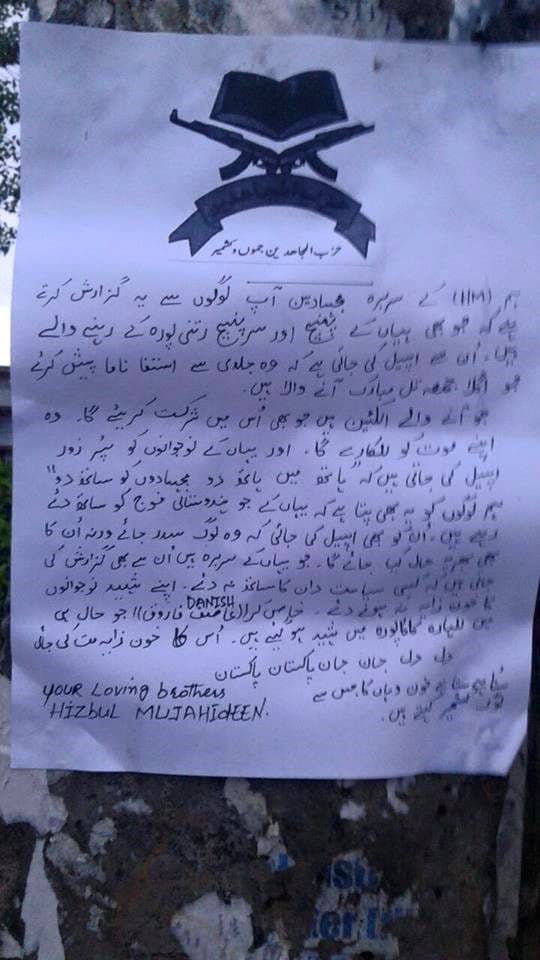 حزب المجاہدین جموں و کشمیر
ہم (HM) کے سربرہ مجہادین آپ لوگوں سے یہ گزارش کرتے
ہے کہ جو بھی یہاں کے پنچ اور سرپنچ رتنی پورہ کے رہنے والے
ہیں۔ اُن سے اپیل کی جاتی ہے کہ وہ جلدی سے استفا ناما پیش کرئے
جو اگلا جمعہ تل مبارک آنے والا ہیں۔
جو آنے والے الکشن ہیں جو بھی اُس میں شرکت کریئے گا۔ وہ
اپنے موت کو للکارے گا۔ اور یہاں کے نوجوانوں کو پُر زور
اپیل کی جاتی ہیں کہ "ہاتھ میں ہاتھ دو مجہادوں کو ساتھ دو"
ہم لوگوں کو یہ بھی پتا ہے کہ یہاں کے جو ہندوستانی فوج کو ساتھ دئے
رہے ہیں۔ اُن کو بھی اپیل کی جاتی کہ وہ لوگ سدر جائے ورنہ اُن کا
بھی حال کیا جائے گا۔ جو یہاں کے سربرہ ہیں اُن سے بھی گزارش کی
جاتی ہیں کہ کسی سیاست دان کا ساتھ نہ دئے۔ اپنے شہید نوجوانوں
کا خون زایہ نہ ہونے دئے۔ خاص کر ((عاصف فاروق)) DANISH جو حال ہی
میں کاکاپورہ میں شہید ہو گئے ہیں۔ اُس کا خون زایہ مت کی جائے
دل دل جان جان پاکستان پاکستان
خون وہاں کا جس سے
لوگ کشمیر کہتے ہیں۔
YOUR Loving brothers
HIZBUL MUJAHIDEEN.